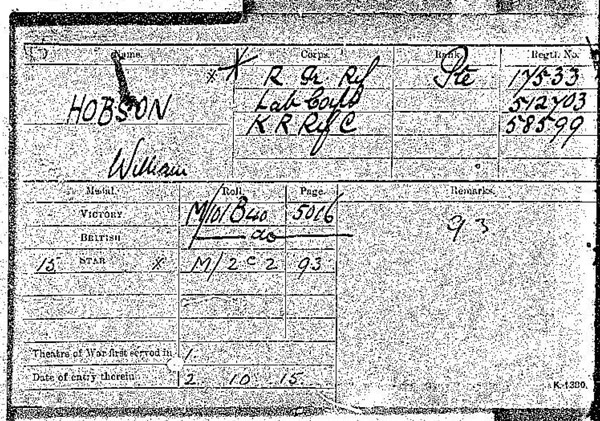 Name. Corps. Rank. Regtl. No.
* * R Ir Rif Pte 17533
HOBSON Lab Corps 512703
K R Rif C 58599
William
Medal. Roll. Page. Remarks.
VICTORY M/101B40 5016 93
BRITISH — do —
15 STAR * M/2c2 93
Theatre of War first served in 1.
Date of entry therein 2 10 15
K. 1380.